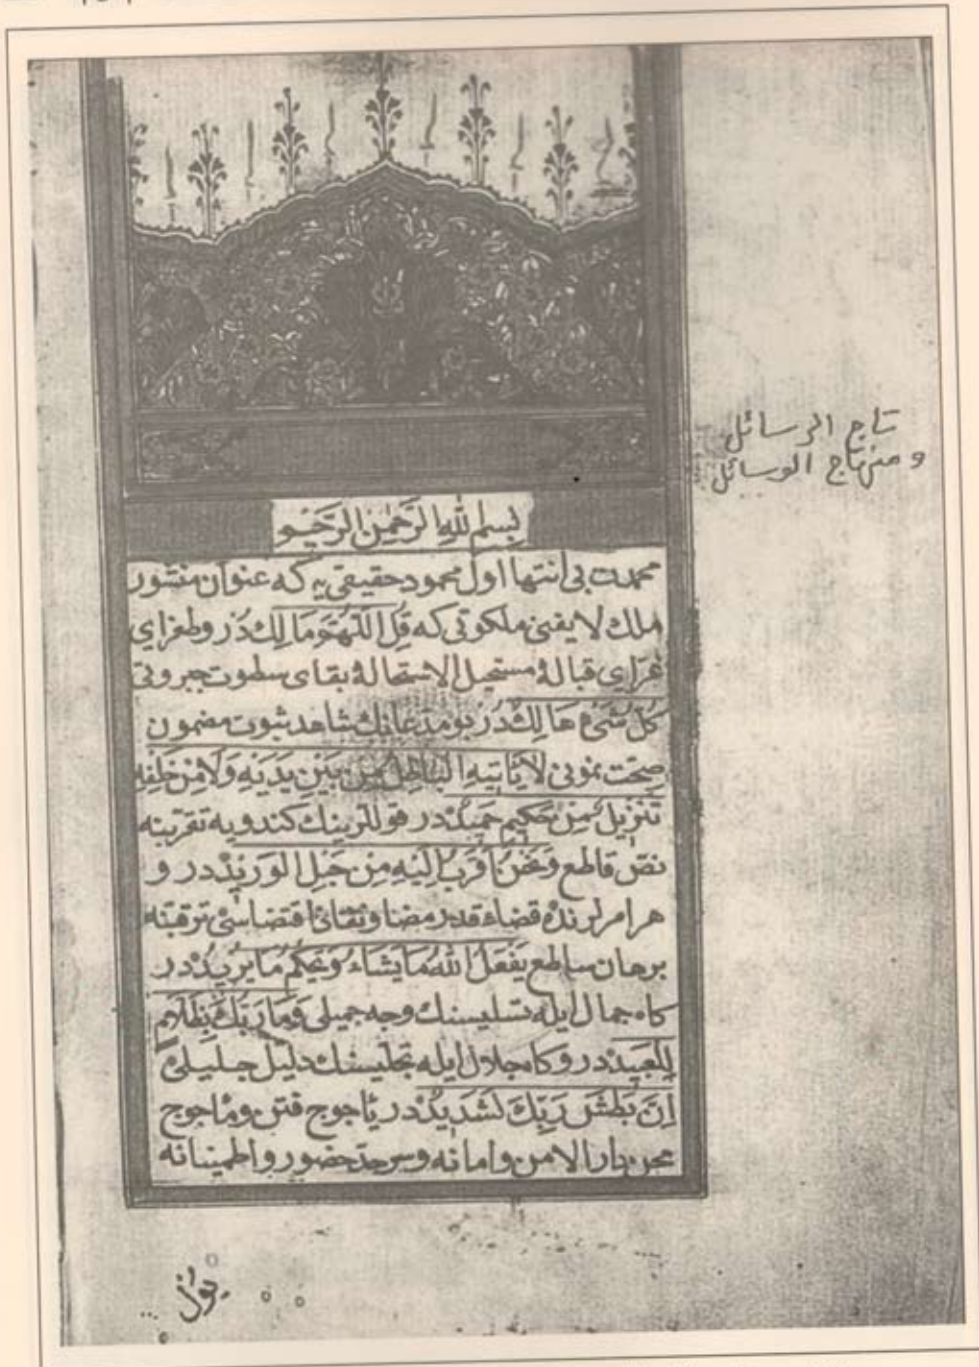 تاج الرسائل
و منهاج الوسائل
بسم الله الرحمن الرحيم
محمدت بی انتها اول محمود حقیقی یه که عنوان منشور
ملك لا یفنی ملکوتی که قُلِ اللّٰهُمَّ مَالِكَ دُر و طغرای
غرّای قبالهٔ مستحیل الاستحالهٔ بقای سطوت جبروتی
كُلُّ شَيْءٍ هَالِكْ دُر بو مدعانك شاهد ثبوت مضمون
صحّت نمونی لَا يَأْتِيهِ الْبَاطِلُ مِنْ بَيْنِ يَدَيْهِ وَلَا مِنْ خَلْفِهِ
تَنْزِيلٌ مِنْ حَكِيمٍ حَمِيدْ در قوللرینك کندویه تقربنه
نصّ قاطع وَنَحْنُ أَقْرَبُ إِلَيْهِ مِنْ حَبْلِ الْوَرِيدْ در و
هر امرلرنده قضاء قدر مضا و اقتضاسی ترقبنه
برهان ساطع يَفْعَلُ اللّٰهُ مَا يَشَاءُ وَيَحْكُمُ مَا يُرِيدْ در
کاه جمال ایله تسلیسنك وجه جمیلی وَمَا رَبُّكَ بِظَلَّامٍ
لِلْعَبِيدْ در و کاه جلال ایله تجلیسنك دلیل جلیلی
اِنَّ بَطْشَ رَبِّكَ لَشَدِيدْ در یأجوج فتن و مأجوج
محن دار الامن و امانه و سرحدّ حضور و اطمینانه